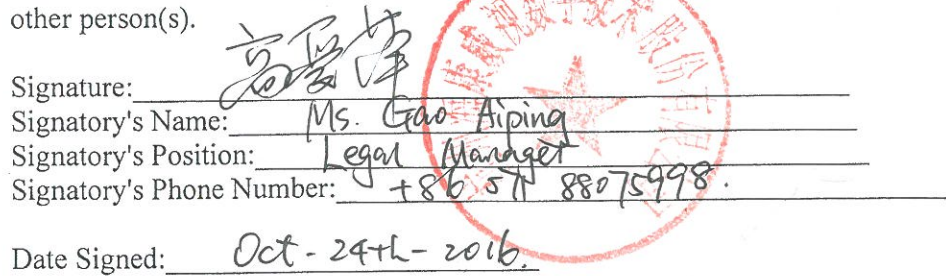 other person(s).
康威视数字技术股份有限公司
Signature: 高爱萍
Signatory's Name: Ms. Gao Aiping
Signatory's Position: Legal Manager
Signatory's Phone Number: +86 571 88075998.
Date Signed: Oct-24th-2016.